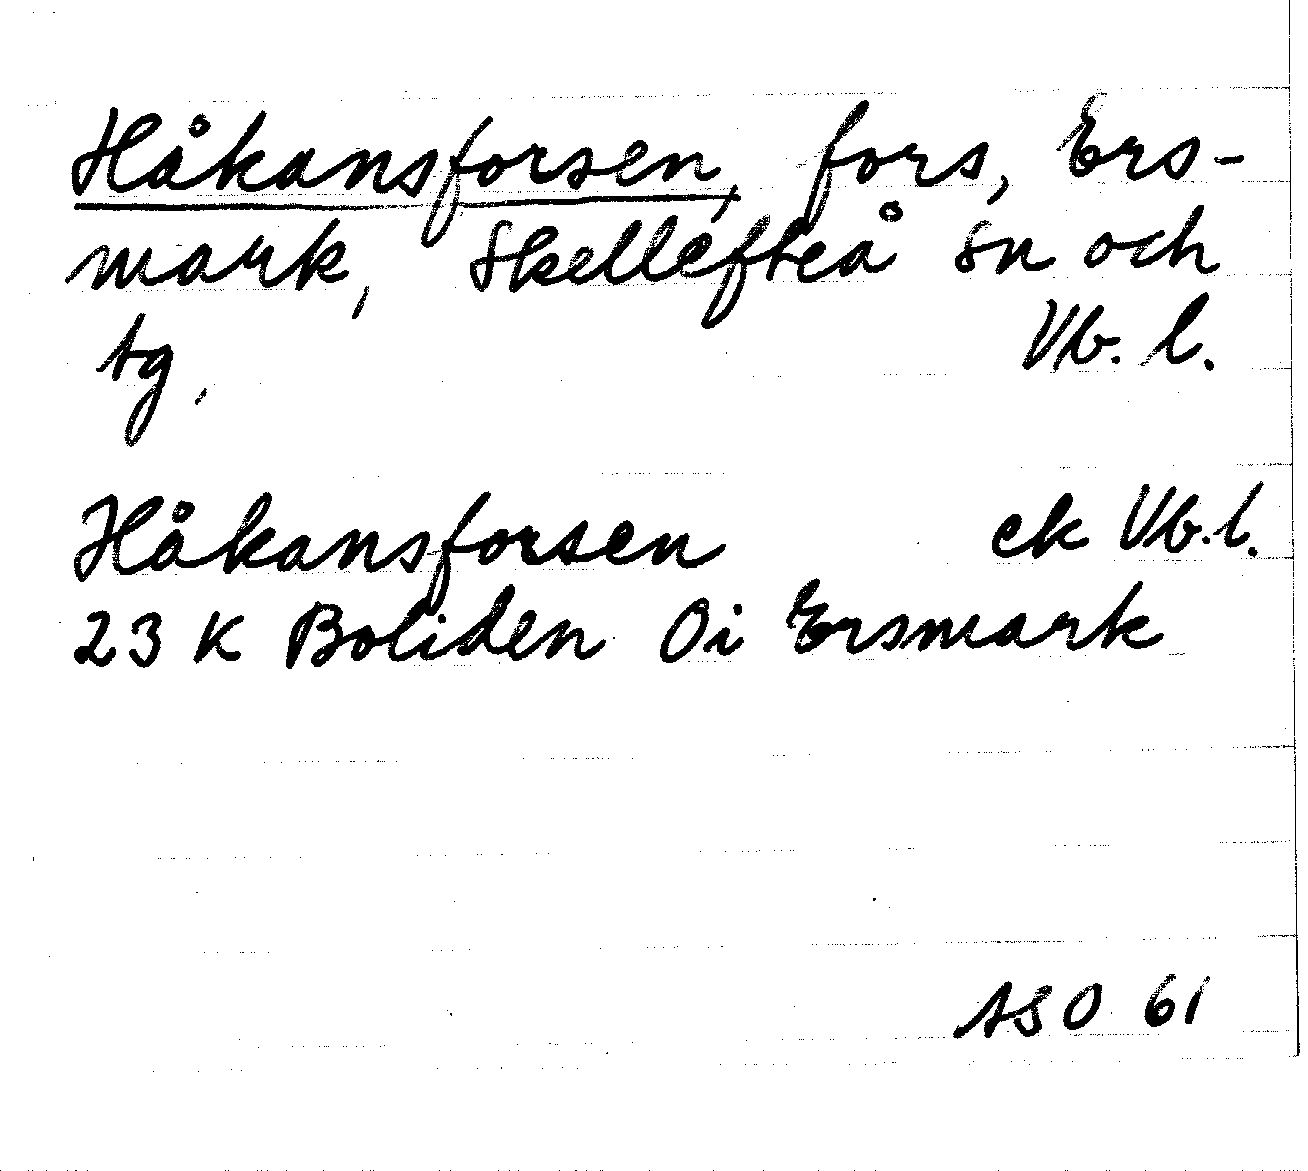 Håkansforsen, fors, Ers-
mark, Skellefteå sn och
tg. Vb. l.
Håkansforsen ek Vb. l.
23 K Boliden 0i Ersmark
ASO 61